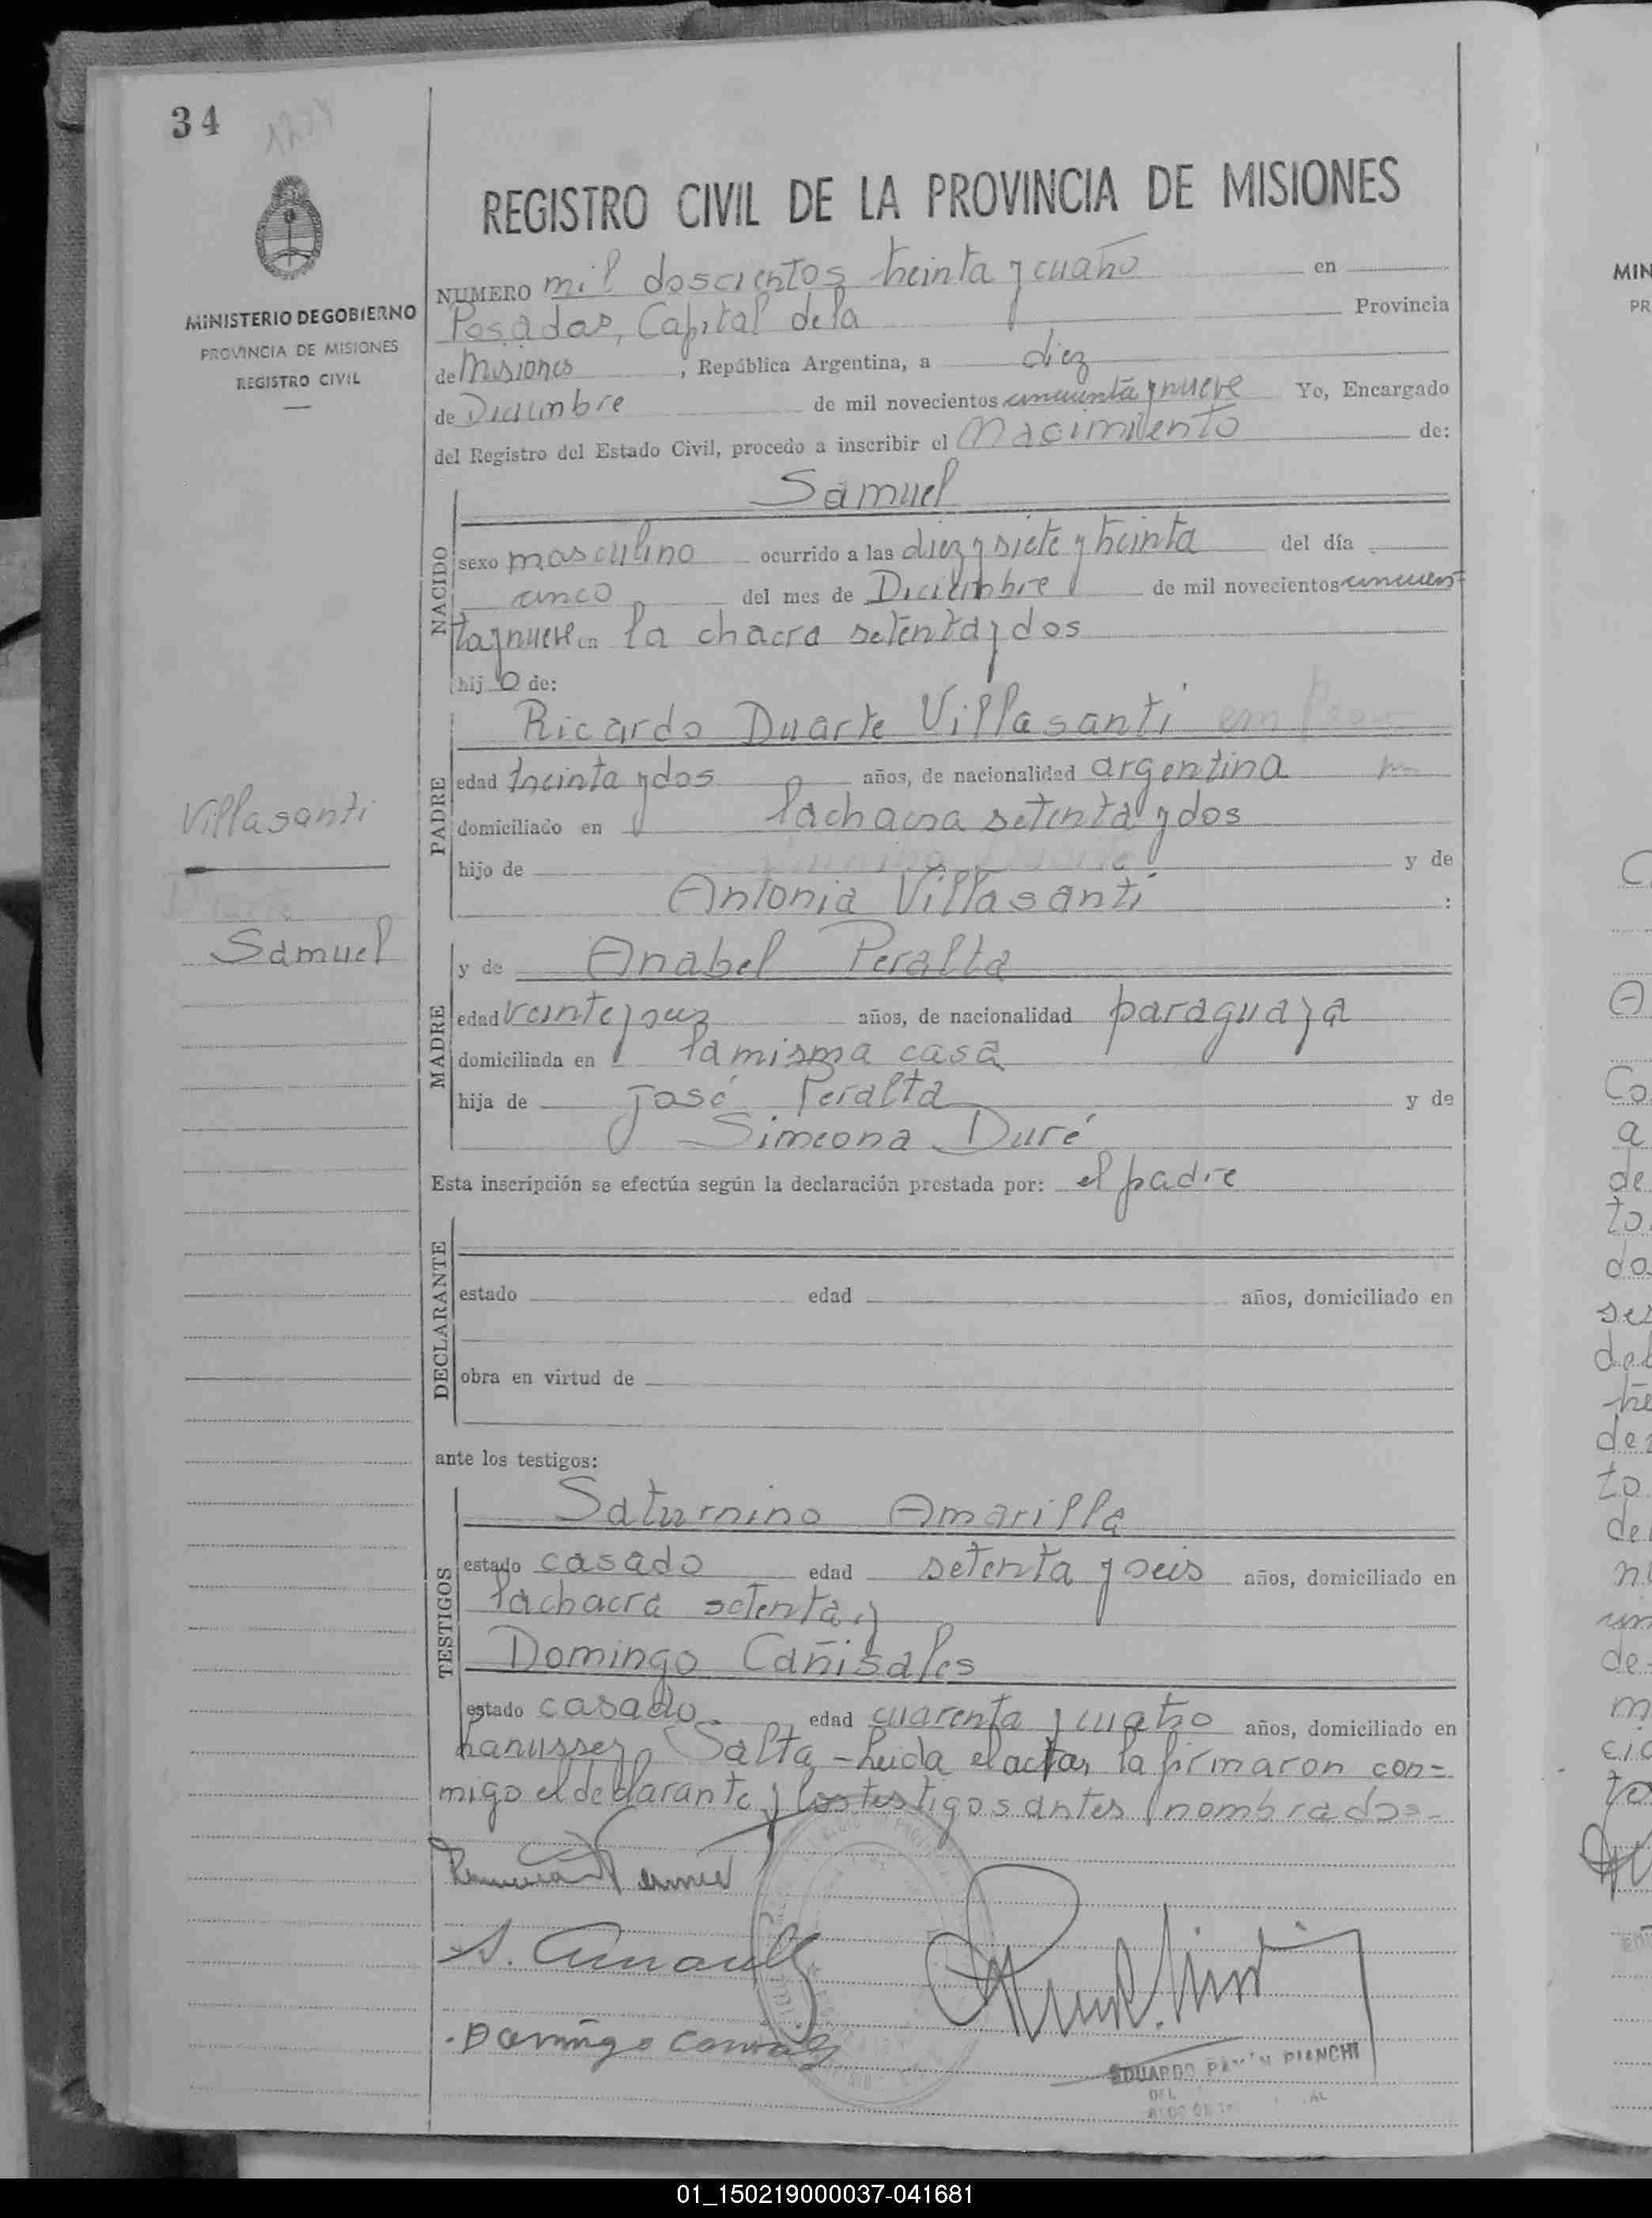 34
1234
REGISTRO CIVIL DE LA PROVINCIA DE MISIONES
MINISTERIO DE GOBIERNO
PROVINCIA DE MISIONES
REGISTRO CIVIL
NUMERO mil doscientos treinta y cuatro en
Posadas, Capital de la Provincia
de Misiones, República Argentina, a diez
de Diciembre de mil novecientos cincuenta y nueve Yo, Encargado
del Registro del Estado Civil, procedo a inscribir el Nacimiento de:
Samuel
NACIDO
sexo masculino ocurrido a las diez y siete y treinta del día
cinco del mes de Diciembre de mil novecientos cincuen
ta y nueve en la chacra setenta y dos
hijo de:
Ricardo Duarte Villasanti
PADRE
edad treinta y dos años, de nacionalidad argentina
domiciliado en la chacra setenta y dos
hijo de y de
Antonia Villasanti :
Villasanti
Duarte
Samuel
y de Anabel Peralta
MADRE
edad veinte y seis años, de nacionalidad paraguaya
domiciliada en la misma casa
hija de José Peralta y de
Simeona Duré
Esta inscripción se efectúa según la declaración prestada por: el padre
DECLARANTE
estado edad años, domiciliado en
obra en virtud de
ante los testigos:
TESTIGOS
Saturnino Amarilla
estado casado edad setenta y seis años, domiciliado en
la chacra setenta y
Domingo Cañisales
estado casado edad cuarenta y cuatro años, domiciliado en
Salta - Leida el acta, la firmaron con=
migo el declarante y los testigos antes nombrados=
EDUARDO RAMÓN BIANCHI
MIN
PR
01_150219000037-041681